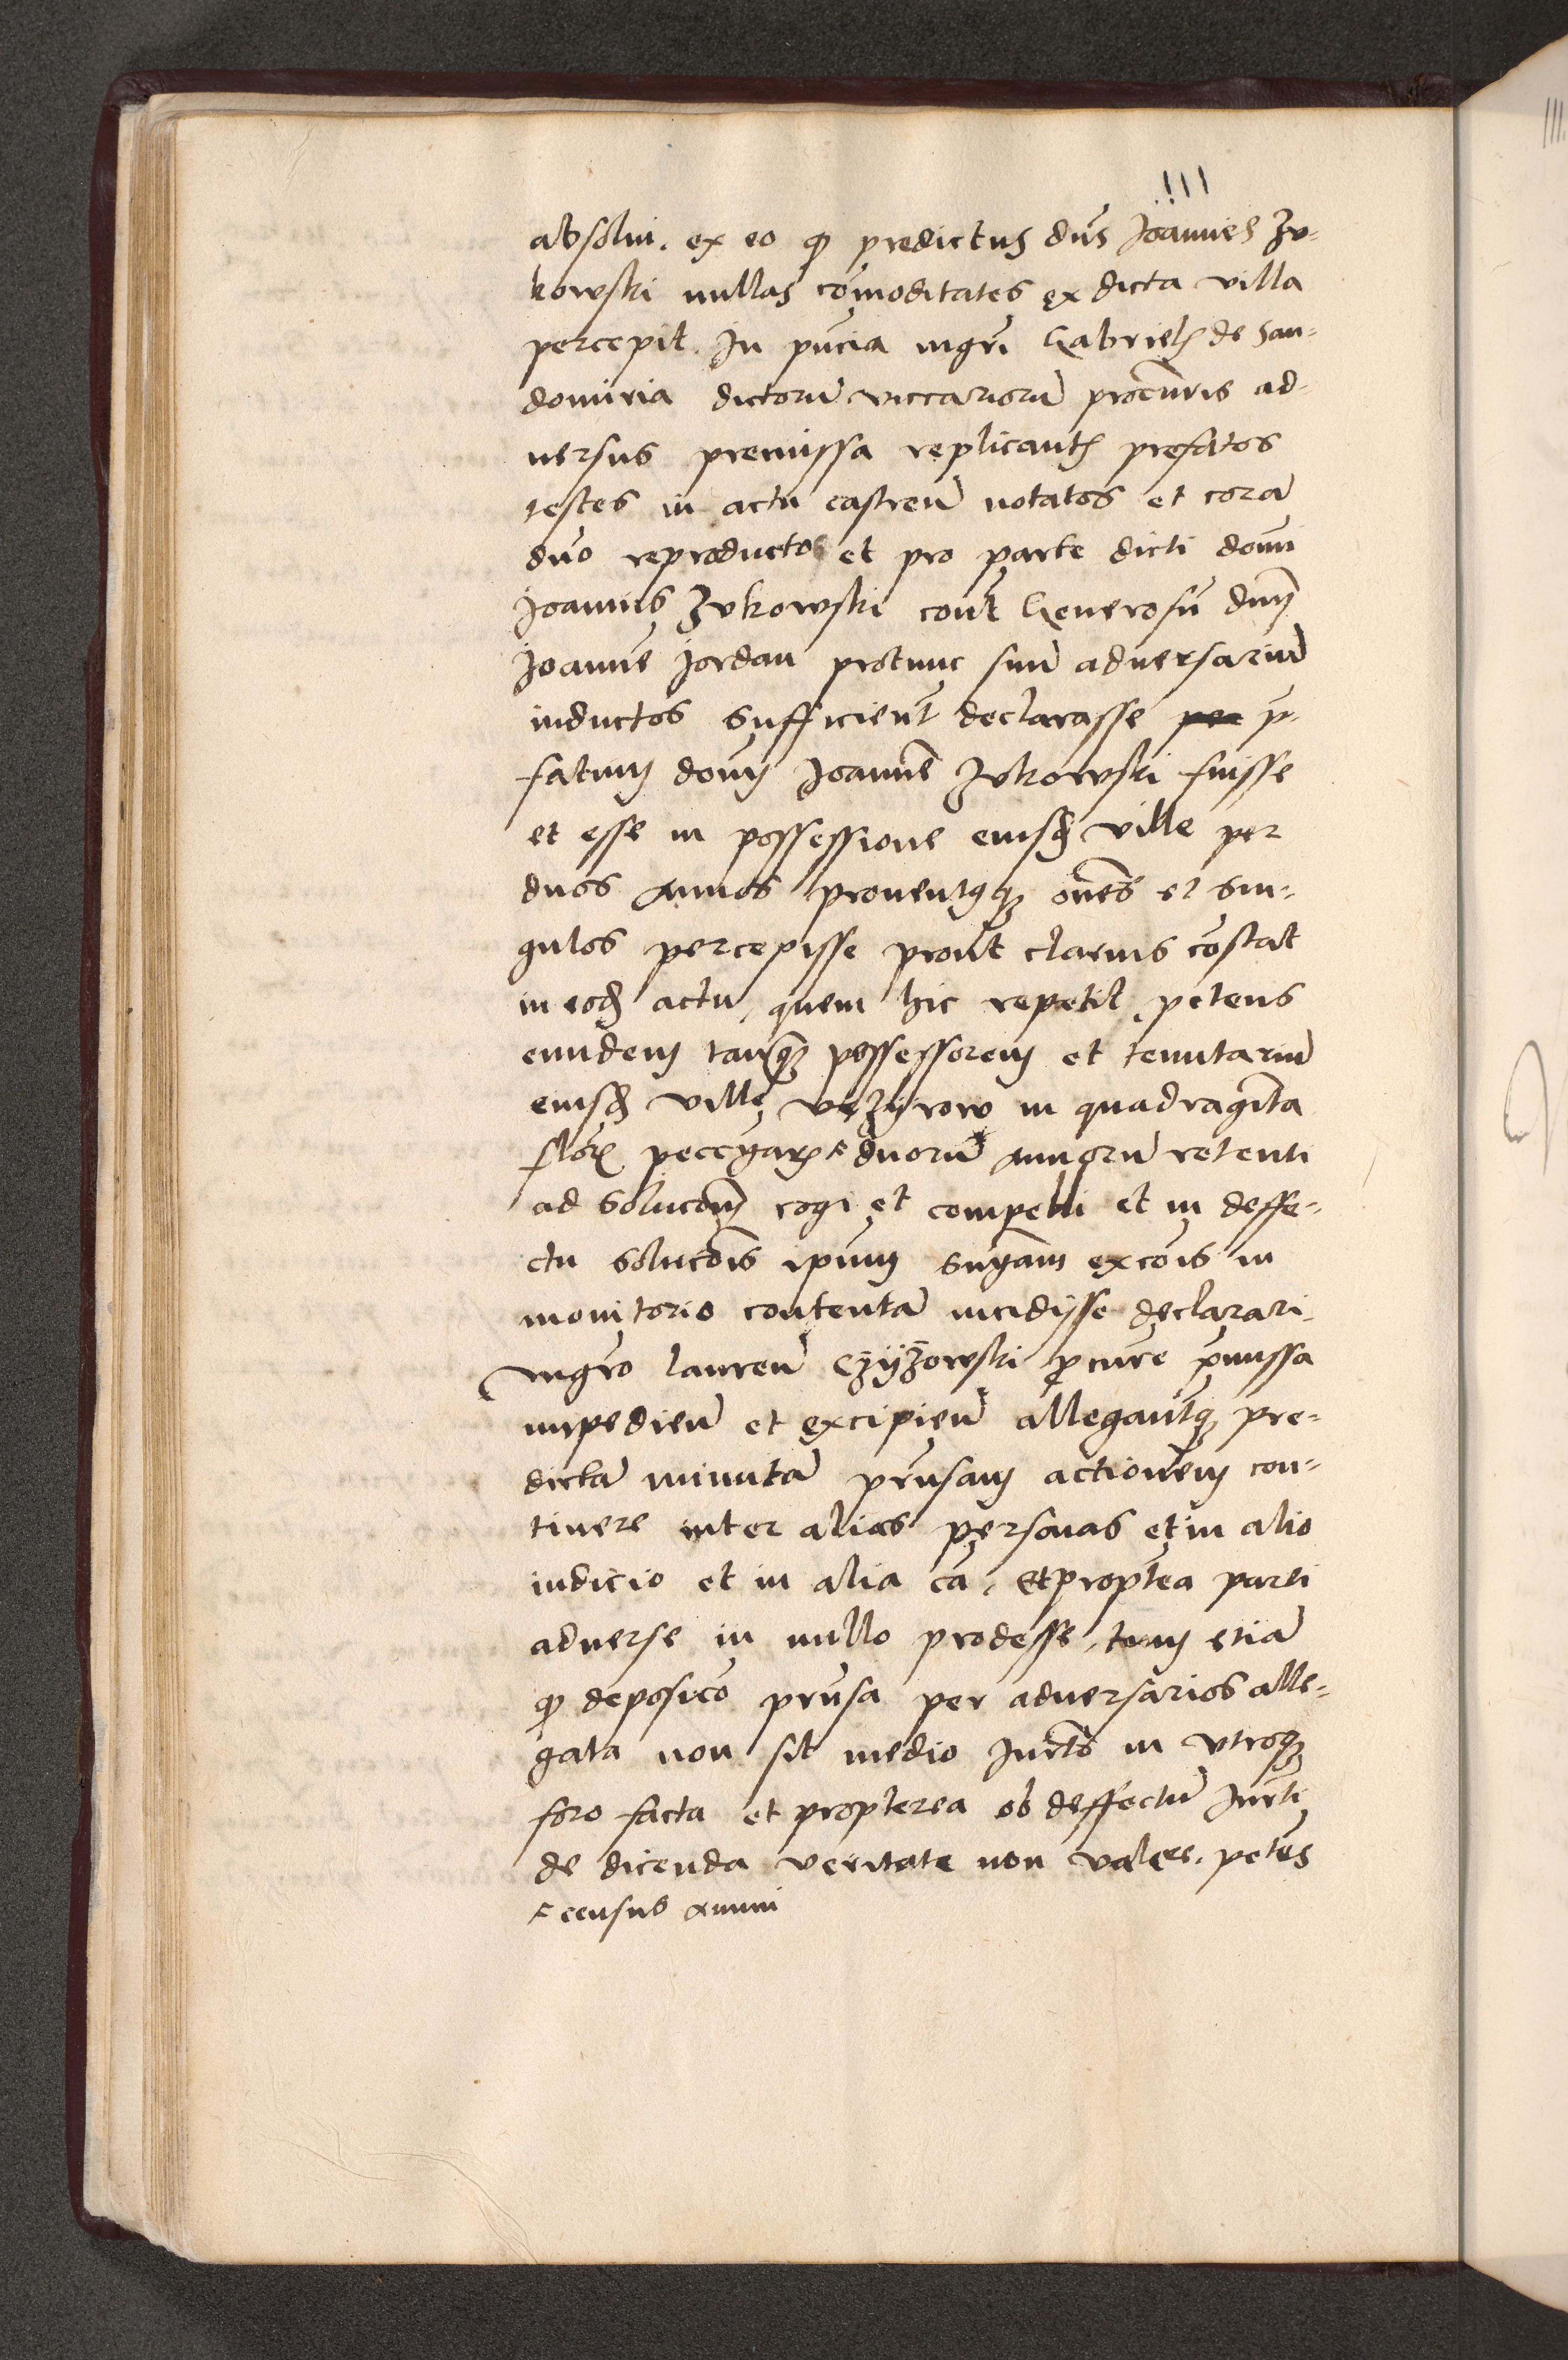 absolui. ex eo qȝ predictus dn̄s Joannes Zv-
kowski nullas co͞moditates ex dicta villa
percepit. In pn̄cia mgr̄i Gabrielis de San-
domiria dictoru͞ viccarioru͞ procuͬris ad-
uersus premissa replicantis prefatos
testes in actu castren͞ notatos et cora͞
dn̄o reproductos et pro parte dicti domi
Joannis Zvkowski cont͞ Generosu͞ dnm͞
Joanne͞ Jordan protunc suu͞ aduersariu͞
inductos sufficient͞ declarasse p̄-
fatum dom͞ Joanne͞ Zvkowski fuisse
et esse in possessione eiusdͅ ville per
duos annos prouentusqȝ om͞es et sin-
gulos percepisse prout clarius co͞stat
in eodͅ actu, quem hic repetit, petens
eundem tanqȝ possessorem et tenutariu͞
eiusdͅ ville Vyzyrow in quadraginta
floris peccuniaris ⸗ duoru͞ annoru͞ retenti
ad soluco͞m cogi et compelli et in deffe-
ctu soluco͞is ipsum sn͞iam exco͞is in
monitorio contenta͞ incidisse declarari.
mgr̄o Lauren͞ Czÿzowski p̱cure p̄missa
impedien͞ et excipien͞ allegantisqȝ pre-
dicta͞ minuta͞ pn̄sam actionem con-
tinere inter alias personas et in alio
iudicio et in alia ca͞, Et propt͞ea parti
aduerse in nullo prodesse, tum etia͞
qȝ deposico͞ pn̄sa per aduersarios alle-
gata non sit medio Jurt͞o in vtroqȝ
foro facta et propterea ob deffectu͞ Jurt͞i
de dicenda veritate non valere. petens
⸗ census annui